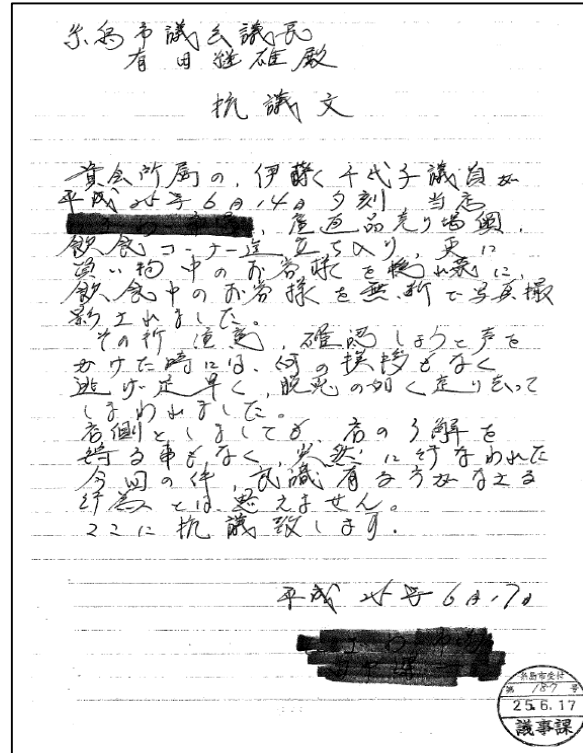 糸島市議会議長
有田継雄殿
抗議文
貴会所属の、伊藤千代子議員が
平成25年6月14日夕刻 当店
、産直品売り場奥、
飲食コーナー迄立ち入り、更に
買い物中のお客様を隠れ蓑に、
飲食中のお客様を無断で写真撮
影されました。
その折 注意、確認しようと声を
かけた時には、何の挨拶もなく
逃げ足早く、脱兎の如く走り去って
しまわれました。
店側としましても 店の了解を
得る事もなく、突然に行なわれた
今回の件、良識有る方がなさる
行為とは思えません。
ここに抗議致します.
平成25年6月17日
糸島市受付
第187号
25.6.17
議事課